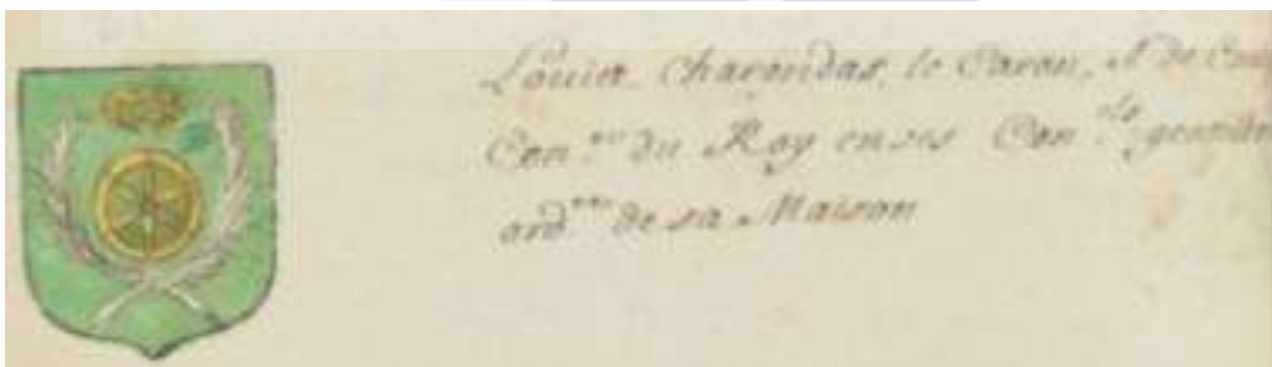 Louis Charondas, le Caron, Sr. de
Con.er du Roy en ses Con.ls gentilh
ord.re de sa Maison